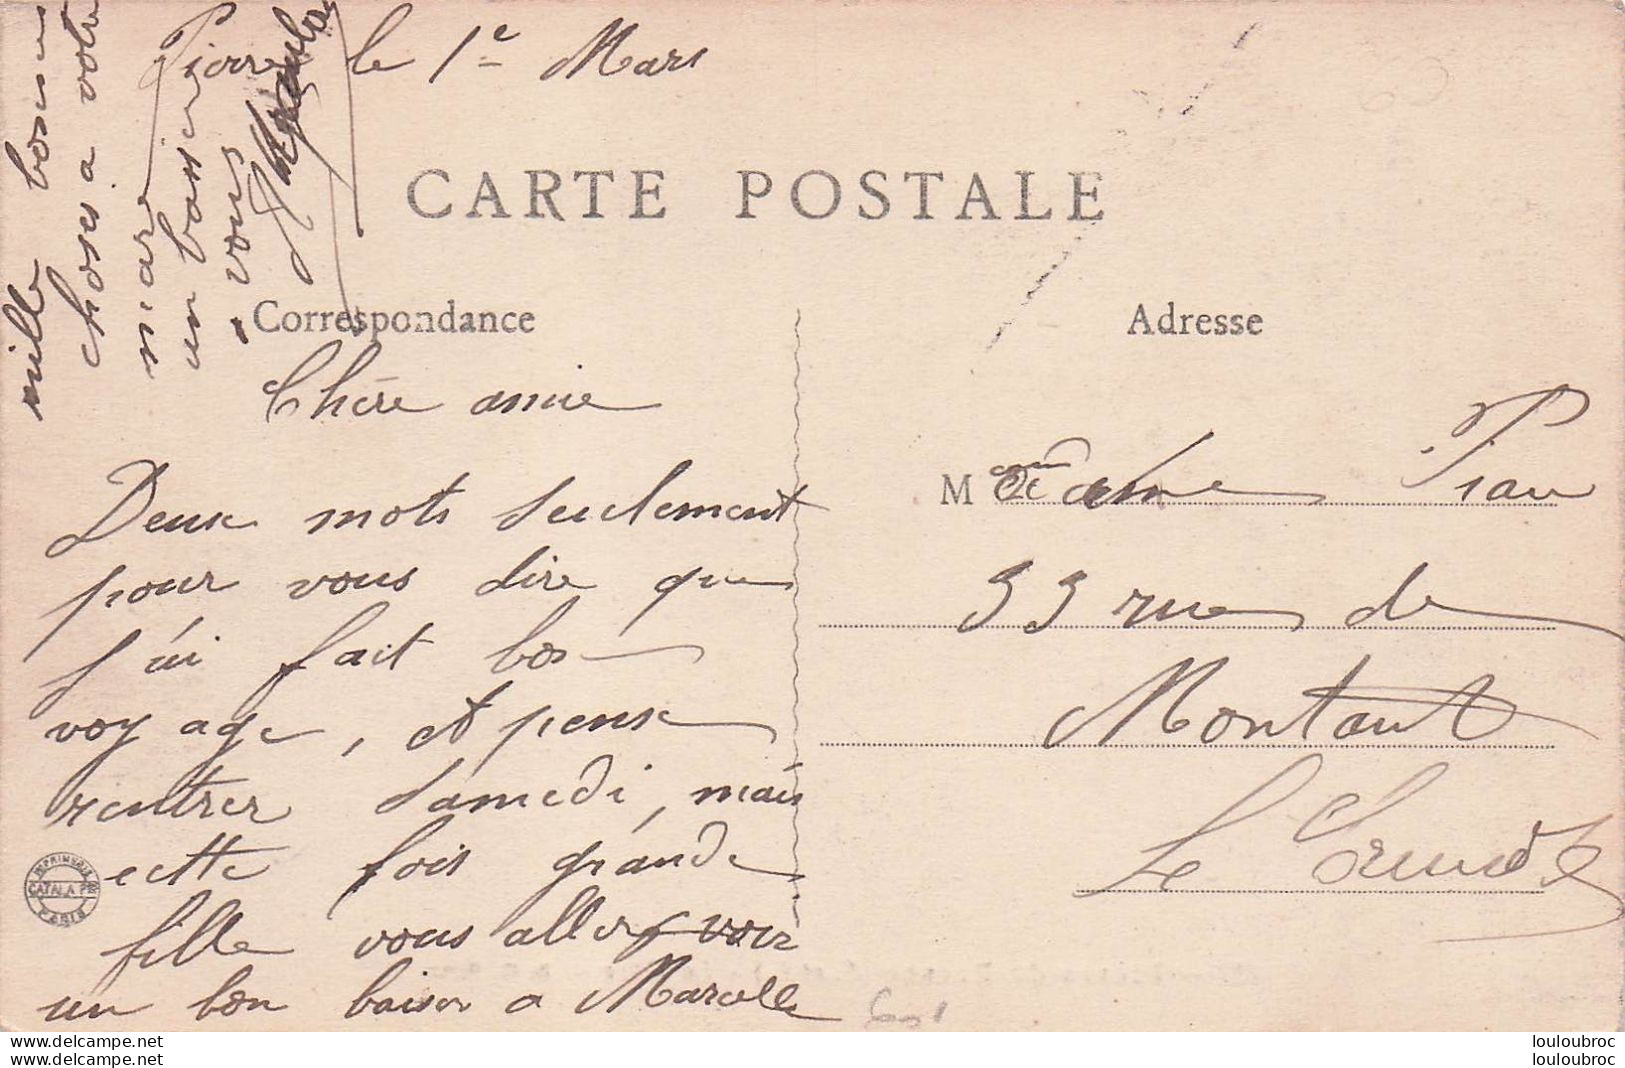 Pierre le 1e Mars
CARTE POSTALE
Correspondance
Adresse
Chère amie
Deux mots seulement
pour vous dire que
j'ai fait bon
voyage, et pense
rentrer samedi, mais
cette fois grande
fille vous aller voir
un bon baiser a Marcelle
mille bonnes
choses a votre
mari
un baiser
a vous
Madame Piau
33 rue de
Montaut
Le
IMPRIMERIE CATALA FRES PARIS
louloubroc
louloubroc